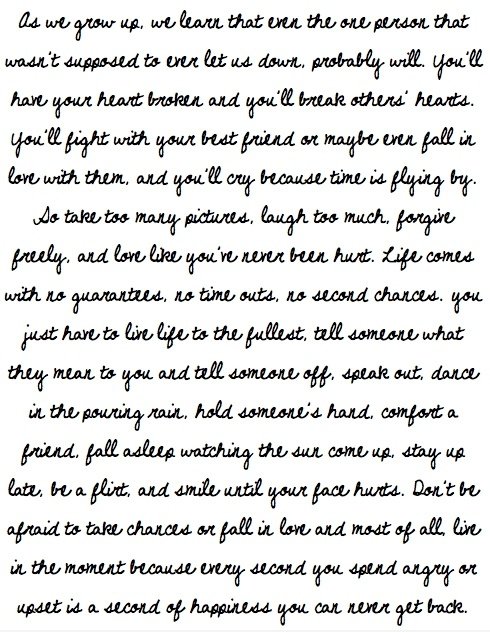 As we grow up, we learn that even the one person that
wasn't supposed to ever let us down, probably will. You'll
have your heart broken and you'll break others' hearts.
You'll fight with your best friend or maybe even fall in
love with them, and you'll cry because time is flying by.
So take too many pictures, laugh too much, forgive
freely, and love like you've never been hurt. Life comes
with no guarantees, no time outs, no second chances. you
just have to live life to the fullest, tell someone what
they mean to you and tell someone off, speak out, dance
in the pouring rain, hold someone's hand, comfort a
friend, fall asleep watching the sun come up, stay up
late, be a flirt, and smile until your face hurts. Don't be
afraid to take chances or fall in love and most of all, live
in the moment because every second you spend angry or
upset is a second of happiness you can never get back.